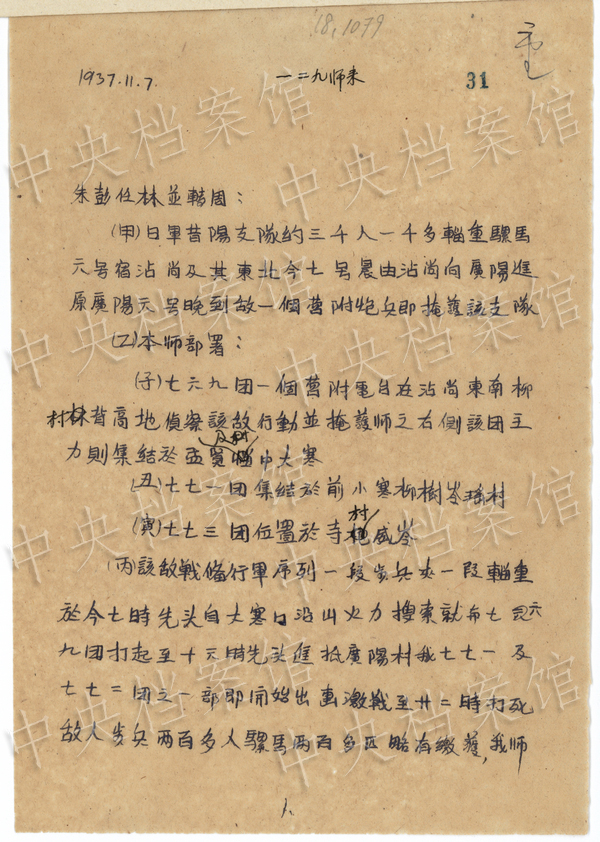 18,1079
1937.11.7.
一二九师来
31
朱彭任林並轉周：
(甲)日軍昔陽支隊約三千人一千多輜重騾馬
元号宿沾尚及其東北今七号晨由沾尚向廣陽進
原廣陽元号晚到敌一個营附炮兵即掩護該支隊
(乙)本师部署：
(子)七六九团一個营附電台在沾尚東南柳
林背高地偵察該敌行動並掩護师之右側該团主
村
力則集結於
及
中大寒
(丑)七七一团集結於前小寒柳樹岺瑶村
(寅)七七三团位置於寺
村
威岺
(丙)該敌戰備行軍序列一段步兵夾一段輜重
於今七時先头自大寒口沿山火力搜索就而七
六
九团打起至十六時先头進抵廣陽村我七七一及
七七二团之一部即開始出击激戰至廿二時打死
敌人步兵两百多人騾馬两百多匹略有缴獲，我师
1.
中央档案馆